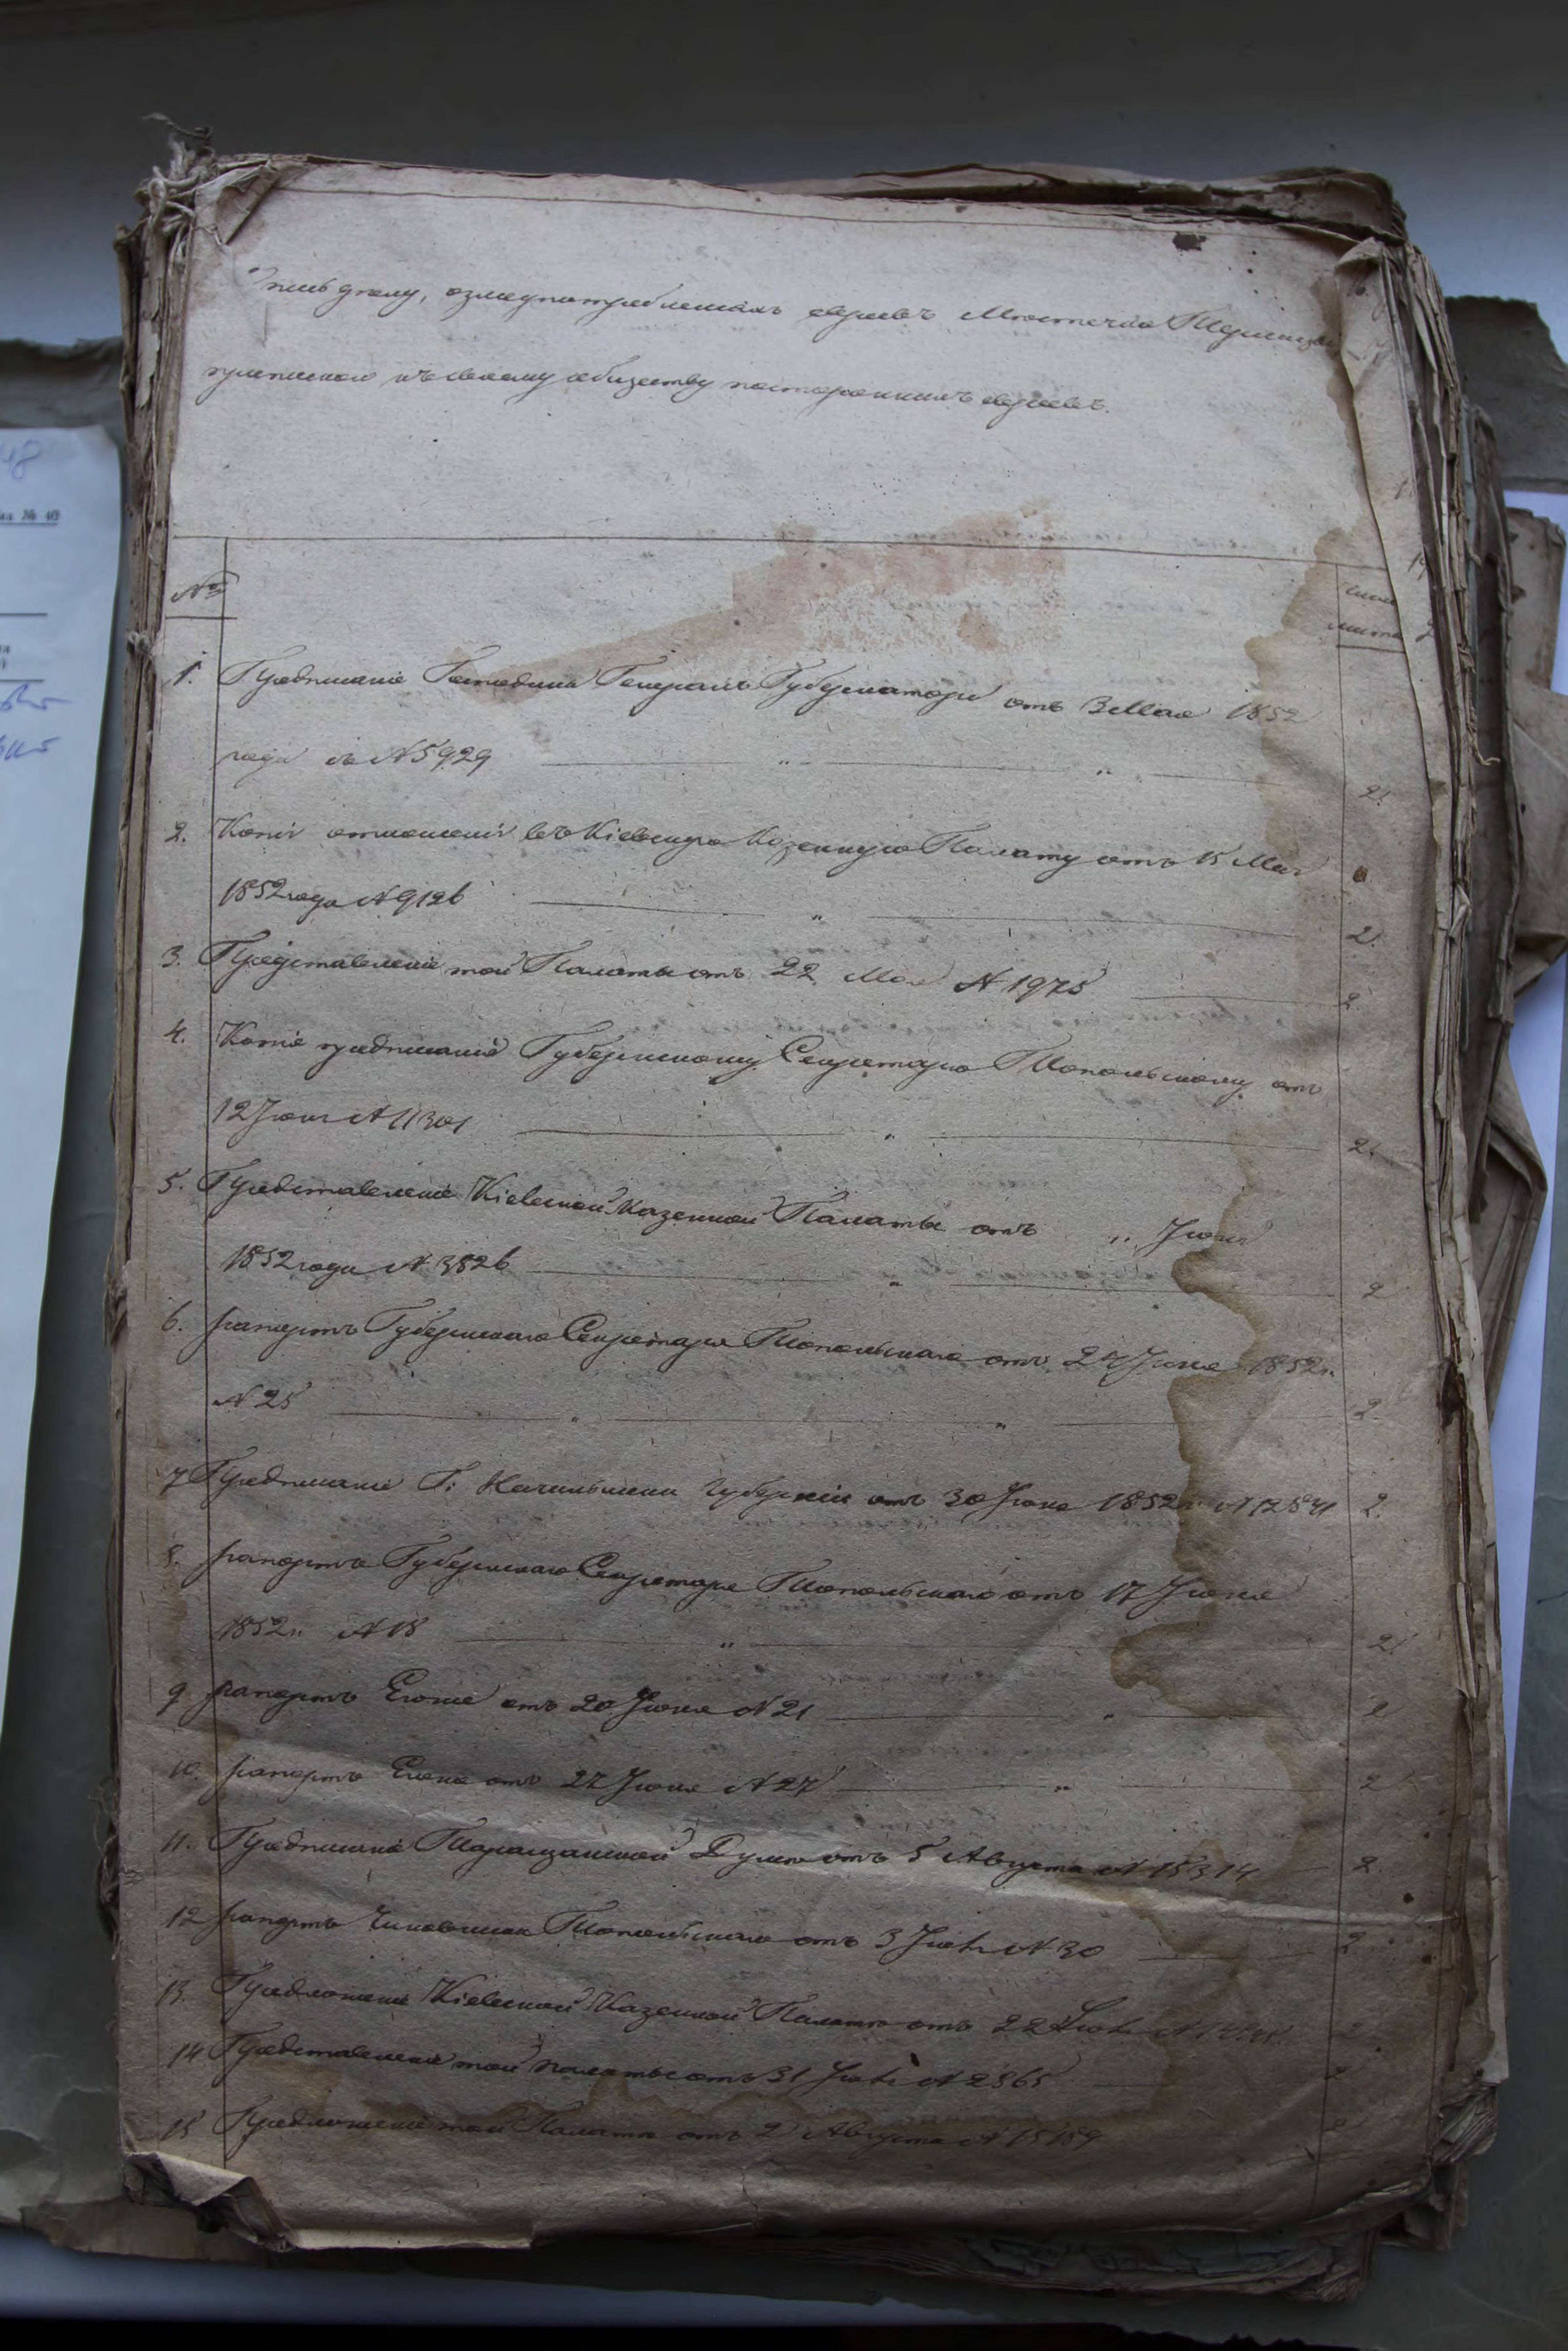 Опись делу, о злоупотребленіяхъ евреевъ Мѣстечка
къ своему обществу постороннихъ евреевъ.
№
Число
листа
1. Предписаніе Господина Генералъ Губернатора отъ 3 Мая 1852
года за № 5929 2.
2. Копія отношенія въ Кіевскую Казенную Палату отъ 15 Мая
1852 года № 9126 2.
3. Представленіе той Палаты отъ 22 Мая № 1975 2
4. Копія предписанія Губернскому Секретарю Топольскому отъ
12 Іюня № 11301 2.
5. Представленіе Кіевской Казенной Палаты отъ „ Іюня
1852 года № 3826 2
6. рапортъ Губернскаго Секретаря Топольскаго отъ 27 Іюня 1852 г.
№ 25 2.
7 Предписаніе Г. Начальника Губерніи отъ 30 Іюня 1852 г. 2.
8. рапортъ Губернскаго Секретаря Топольскаго отъ 17 Іюня
1852 г. № 18 2.
9 рапортъ Егоже отъ 20 Іюня № 21 2
10. рапортъ Егоже отъ 27 Іюня № 27 2
11. Предписаніе Таращанской Думѣ отъ 5 Августа № 15314 2.
12 рапортъ Чиновника Топольскаго отъ 3 Іюля № 30 2
13. Предложеніе Кіевской Казенной Палатѣ отъ 22 Іюля 2
14 Представленіе той палаты отъ 31 Іюля № 2865 2
15 Предложеніе той Палатѣ отъ 2 Августа № 15159 2
48
№ 40